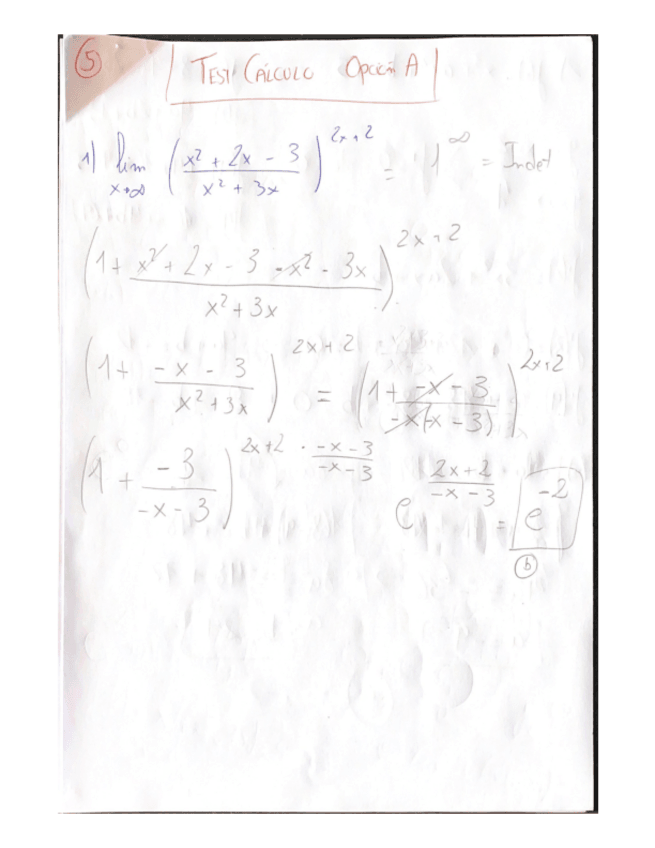 5
TEST CÁLCULO OPCIÓN A
1) lim x→∞ ((x² + 2x - 3)/(x² + 3x))^(2x+2) = 1^∞ = Indet
(1 + (x² + 2x - 3 - x² - 3x)/(x² + 3x))^(2x+2)
(1 + (-x - 3)/(x² + 3x))^(2x+2) = (1 + (-x - 3)/(-x(-x - 3)))^(2x+2)
(1 + (-3)/(-x - 3))^(2x+2 · (-x-3)/(-x-3)) e^((2x+2)/(-x-3)) = e^(-2)
b